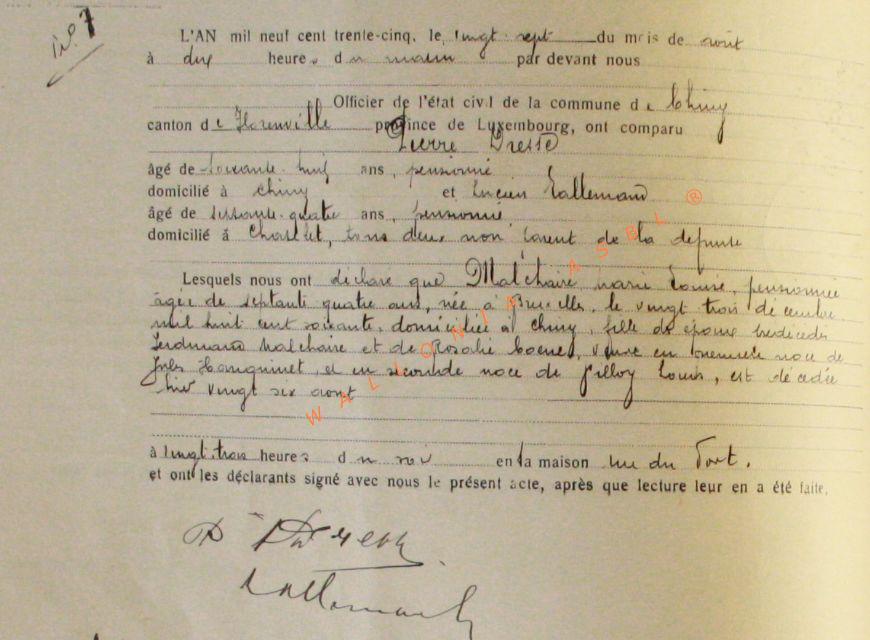 N° 7
L'AN mil neuf cent trente-cinq, le vingt sept du mois de août
à dix heures du matin par devant nous
Officier de l'état civil de la commune de Chiny
canton de Florenville province de Luxembourg, ont comparu
Pierre Dresse
âgé de soixante huit ans, pensionné
domicilié à Chiny et Lucien Lallemand
âgé de soixante-quatre ans, pensionné
domicilié à Charlet, tous deux non parent de la defunte
Lesquels nous ont déclaré que Malchaire Marie Louise, pensionnée
âgée de septante quatre ans, née à Bruxelles, le vingt trois décembre
mil huit cent soixante, domiciliée à Chiny, fille de époux predécédés
Ferdinand Malchaire et de Rosalie Coenes, veuve en première noce de
Jules Hanquinet, et en seconde noce de Pilloy Louis, est décédée
hier vingt six août
à vingt-trois heures du soir en la maison rue du Fort.
et ont les déclarants signé avec nous le présent acte, après que lecture leur en a été faite.
Lallemand
WALLONIA ASBL ®